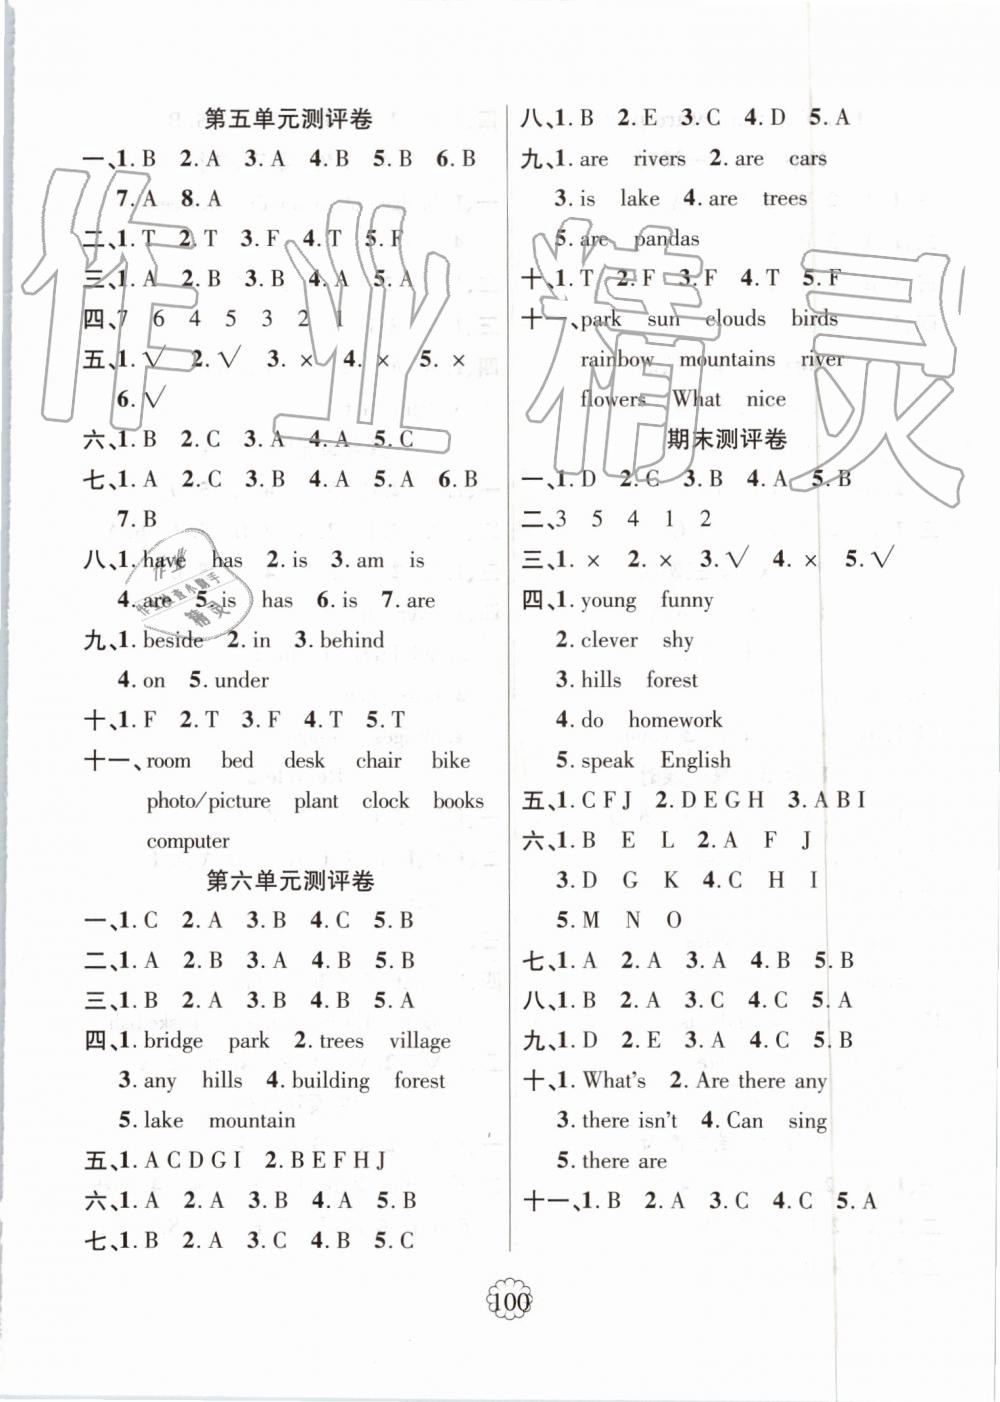 第五单元测评卷
一、1. B 2. A 3. A 4. B 5. B 6. B
7. A 8. A
二、1. T 2. T 3. F 4. T 5. F
三、1. A 2. B 3. B 4. A 5. A
四、7 6 4 5 3 2 1
五、1. √ 2. √ 3. × 4. × 5. ×
6. √
六、1. B 2. C 3. A 4. A 5. C
七、1. A 2. C 3. B 4. A 5. A 6. B
7. B
八、1. have has 2. is 3. am is
4. are 5. is has 6. is 7. are
九、1. beside 2. in 3. behind
4. on 5. under
十、1. F 2. T 3. F 4. T 5. T
十一、room bed desk chair bike
photo/picture plant clock books
computer
第六单元测评卷
一、1. C 2. A 3. B 4. C 5. B
二、1. A 2. B 3. A 4. B 5. B
三、1. B 2. A 3. B 4. B 5. A
四、1. bridge park 2. trees village
3. any hills 4. building forest
5. lake mountain
五、1. A C D G I 2. B E F H J
六、1. A 2. A 3. B 4. A 5. B
七、1. B 2. A 3. C 4. B 5. C
八、1. B 2. E 3. C 4. D 5. A
九、1. are rivers 2. are cars
3. is lake 4. are trees
5. are pandas
十、1. T 2. F 3. F 4. T 5. F
十一、park sun clouds birds
rainbow mountains river
flowers What nice
期末测评卷
一、1. D 2. C 3. B 4. A 5. B
二、3 5 4 1 2
三、1. × 2. × 3. √ 4. × 5. √
四、1. young funny
2. clever shy
3. hills forest
4. do homework
5. speak English
五、1. C F J 2. D E G H 3. A B I
六、1. B E L 2. A F J
3. D G K 4. C H I
5. M N O
七、1. A 2. A 3. A 4. B 5. B
八、1. B 2. A 3. C 4. C 5. A
九、1. D 2. E 3. A 4. C 5. B
十、1. What's 2. Are there any
3. there isn't 4. Can sing
5. there are
十一、1. B 2. A 3. C 4. C 5. A
100
作业精灵
作业
精灵